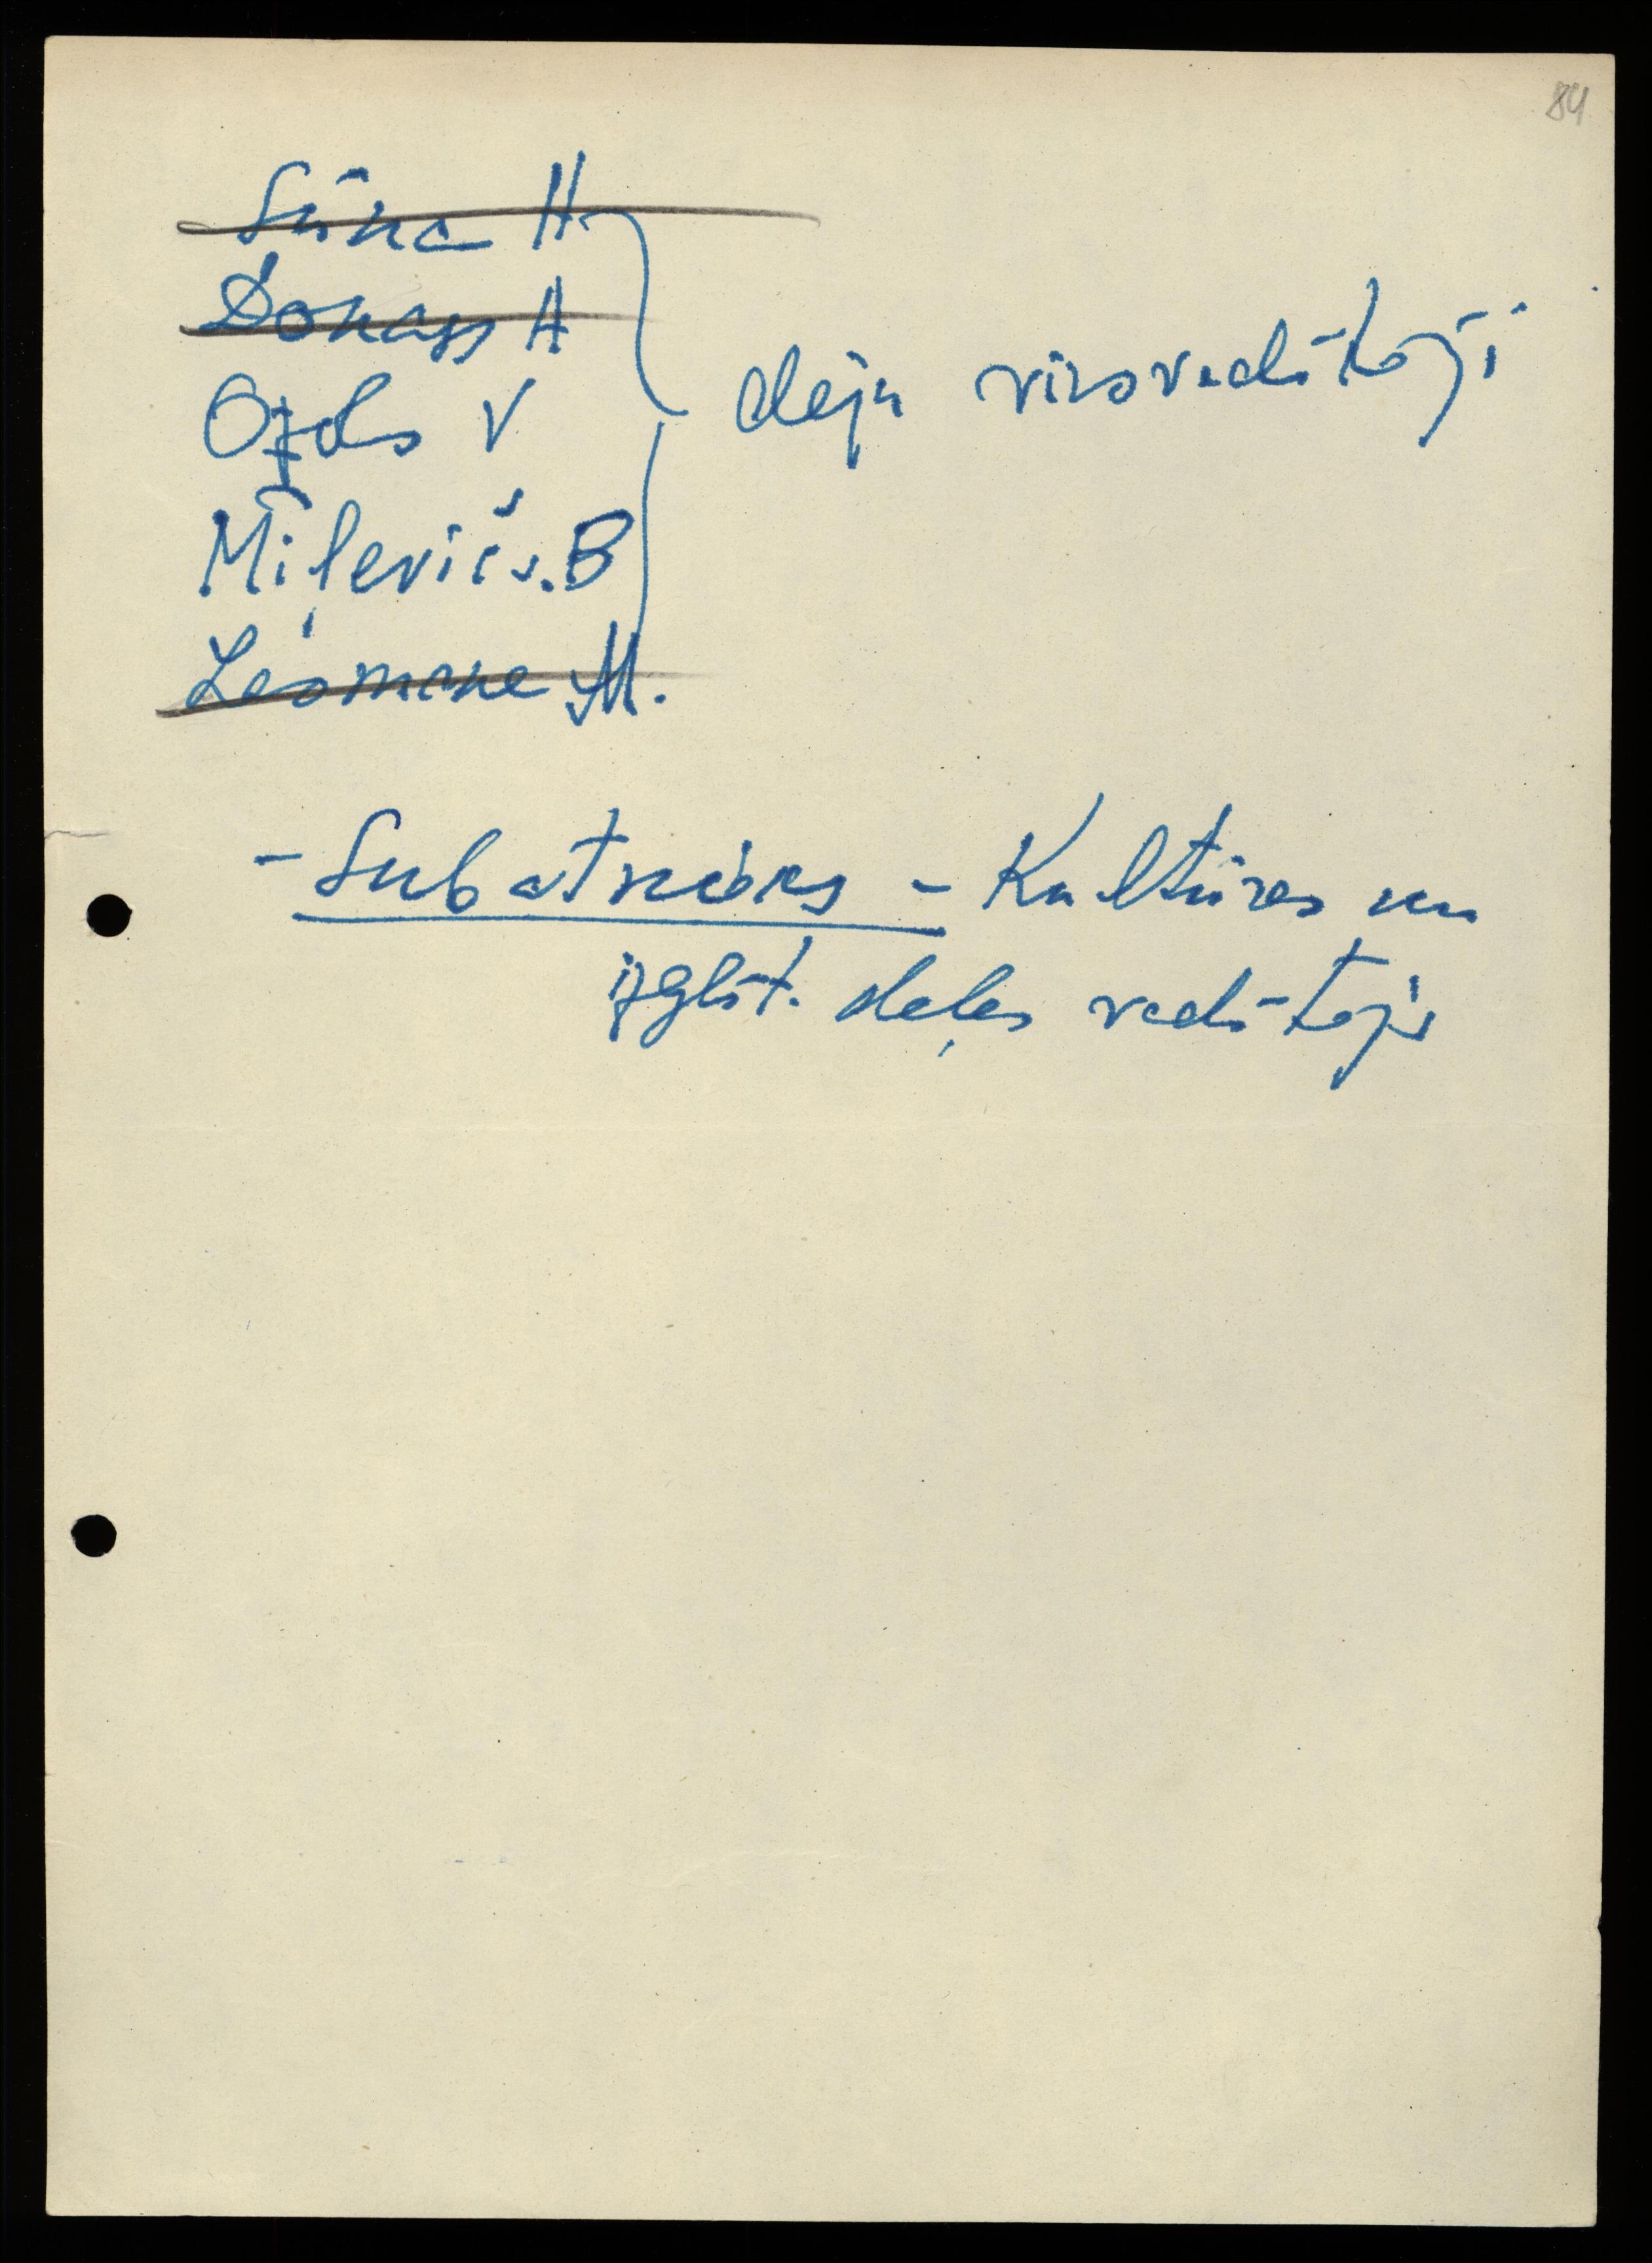 84
Sūna H.
Donass A
Ozols V
Miļevičs. B
Lasmane M.
deju virsvadītāji
- Subatnieks - Kultūras un
izglīt. daļas vadītājs